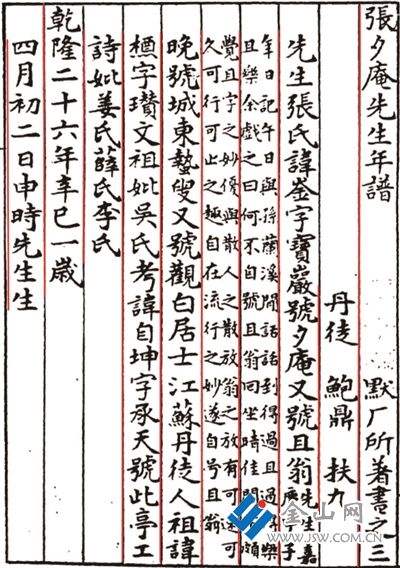 張夕庵先生年譜　默厂所著書之三
丹徒　鮑鼎　扶九
先生張氏諱崟字寶巖號夕庵又號且翁先生嘉庚午
年日記午日與孫蘭溪閒話話到得過且過得樂
且樂余戲之曰何不自號且翁回坐時佳間頗
覺且字之妙優與散人之散放翁之放有可速可
久可行可止之趣自在流行之妙遂自号且翁
晚號城東蟄叟又號觀白居士江蘇丹徒人祖諱
字瓚文祖妣吳氏考諱自坤字承天號此亭工
詩妣姜氏薛氏李氏
乾隆二十六年辛巳一歲
四月初二日申時先生生
金山网
WWW.JSW.COM.CN